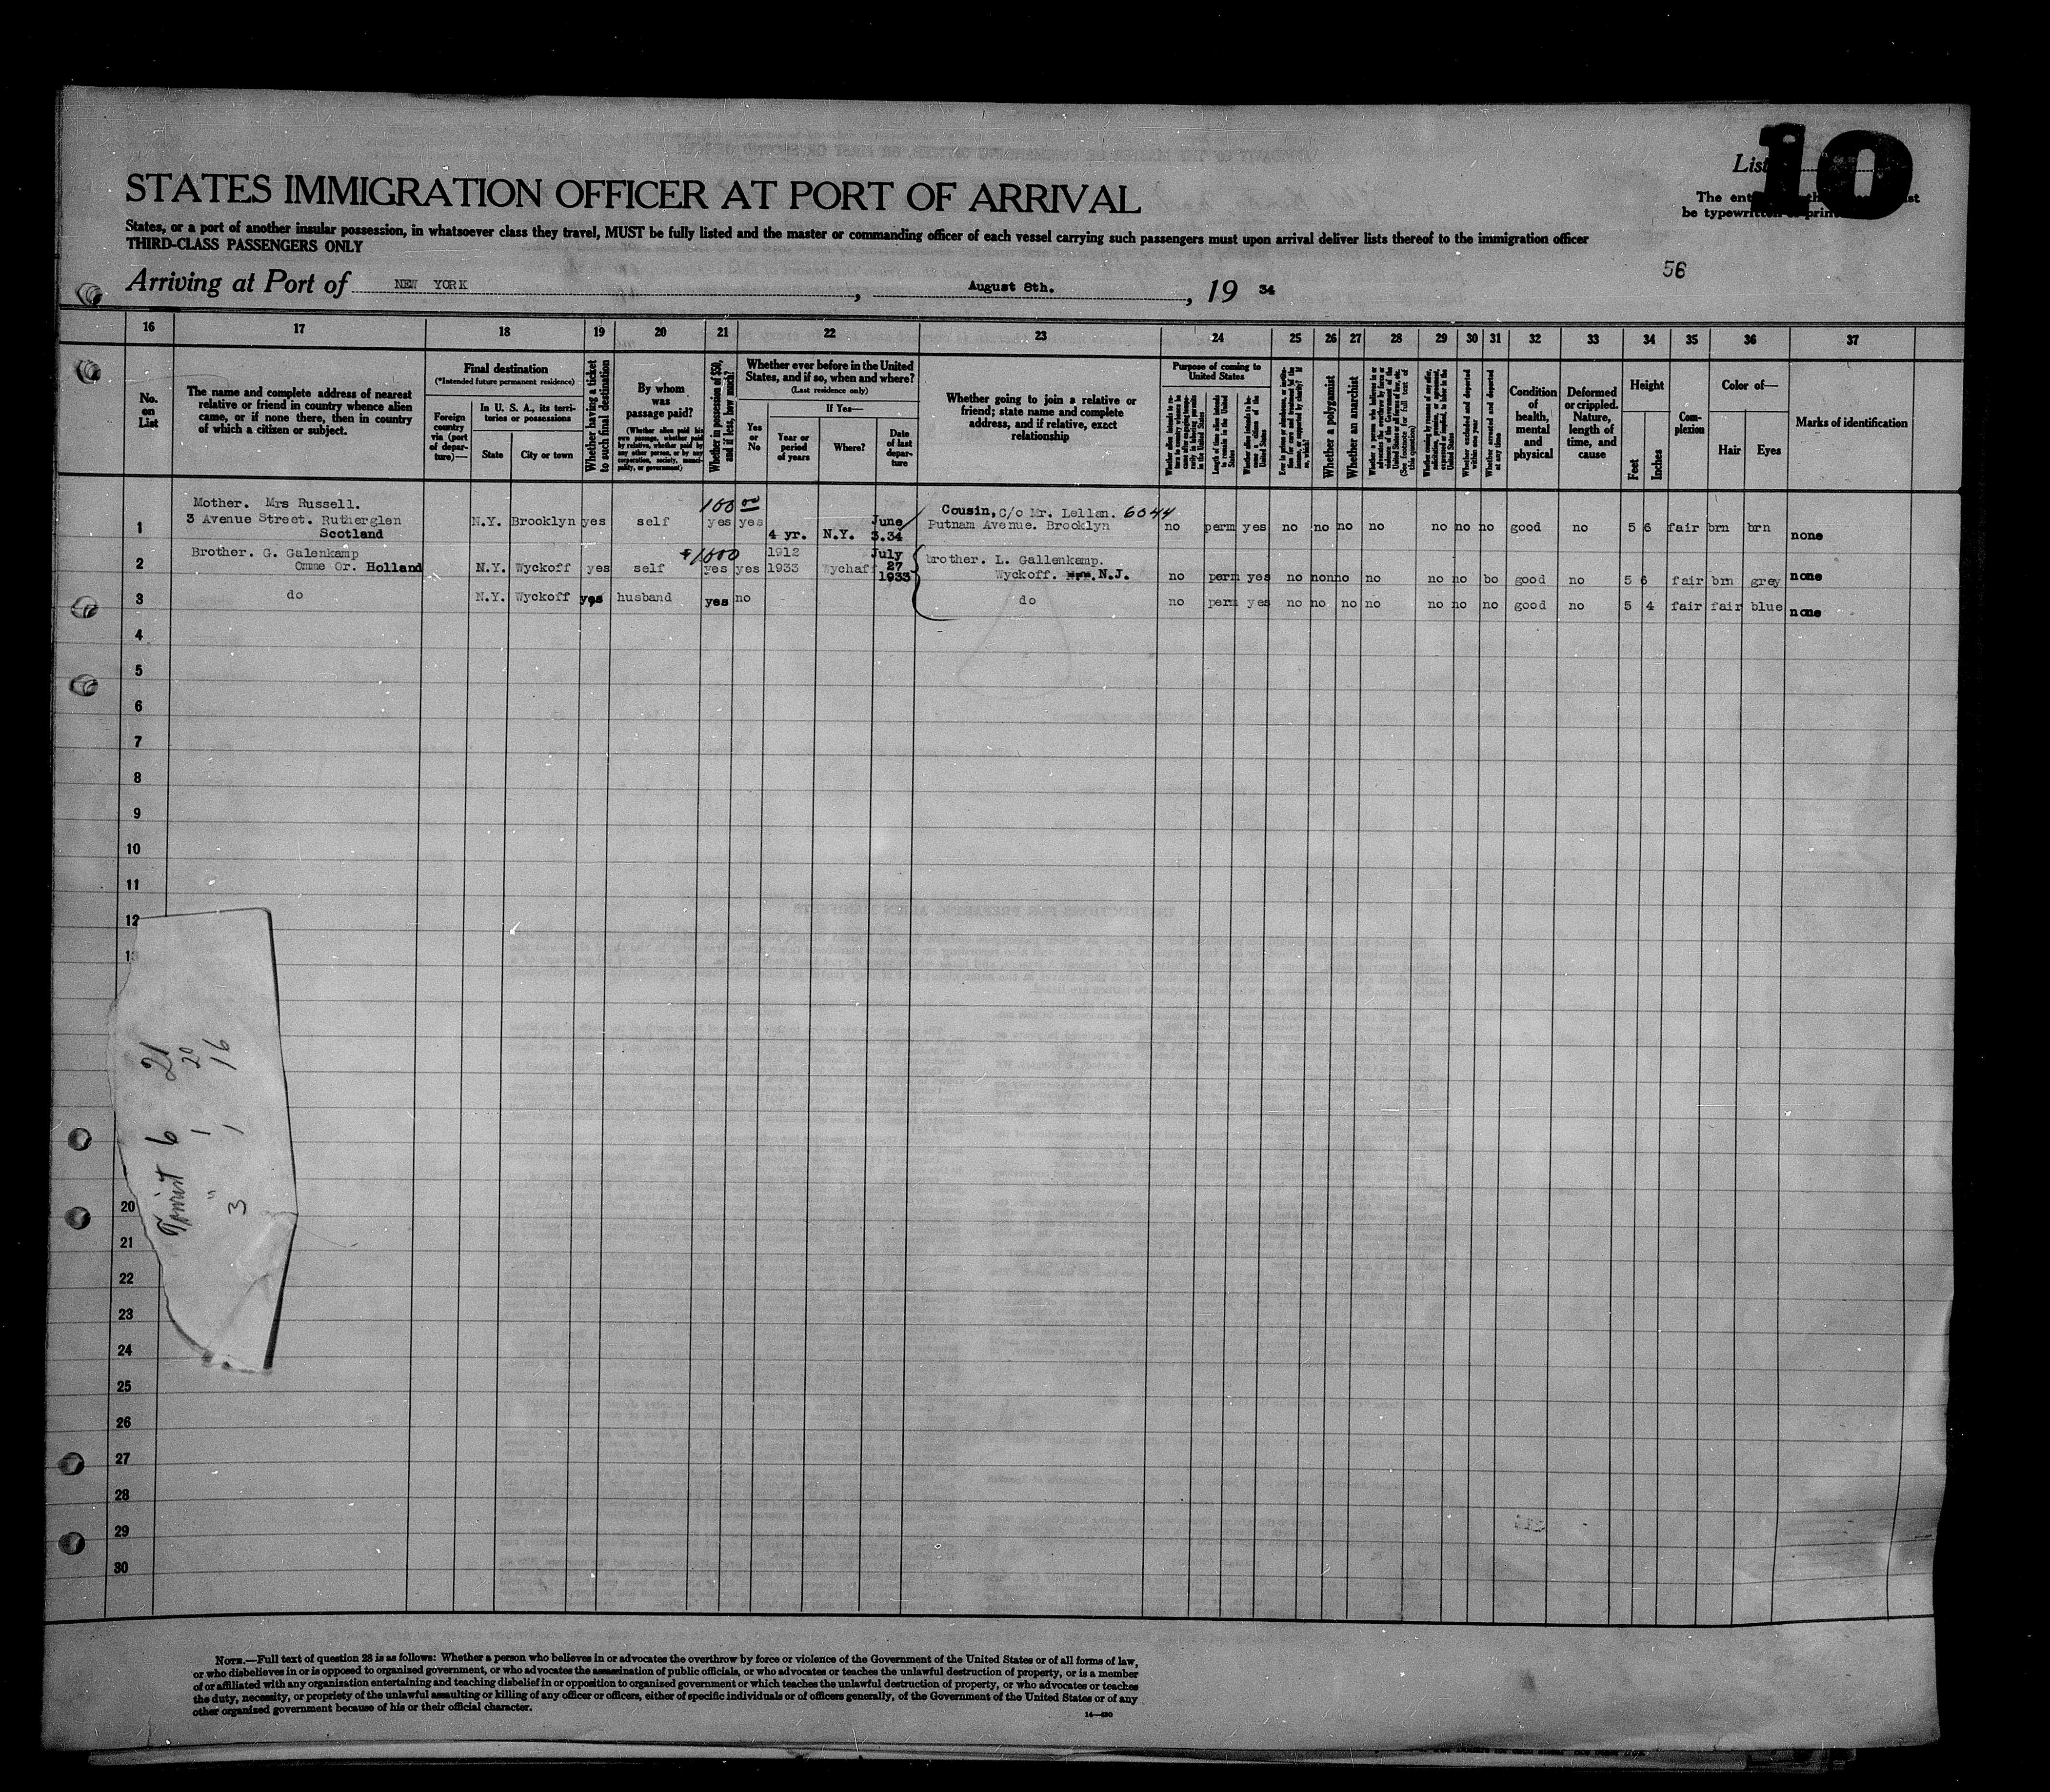 List 10
STATES IMMIGRATION OFFICER AT PORT OF ARRIVAL
States, or a port of another insular possession, in whatsoever class they travel, MUST be fully listed and the master or commanding officer of each vessel carrying such passengers must upon arrival deliver lists thereof to the immigration officer
THIRD-CLASS PASSENGERS ONLY
be typewritten or
56
Arriving at Port of NEW YORK, August 8th., 19 34
16 17 18 19 20 21 22 23 24 25 26 27 28 29 30 31 32 33 34 35 36 37
No. on List
The name and complete address of nearest relative or friend in country whence alien came, or if none there, then in country of which a citizen or subject.
Final destination
(*Intended future permanent residence)
Foreign country via (port of departure)—
In U. S. A., its territories or possessions
State
City or town
Whether having a ticket to such final destination
By whom was passage paid?
(Whether alien paid his own passage, whether paid by relative, whether paid by any other person, or by any corporation, society, municipality, or government)
Whether in possession of $50, and if less, how much?
Whether ever before in the United States, and if so, when and where?
(Last residence only)
Yes or No
If Yes—
Year or period of years
Where?
Date of last departure
Whether going to join a relative or friend; state name and complete address, and if relative, exact relationship
Purpose of coming to United States
Length of time alien intends to remain in the United States
Whether alien intends to become a citizen of the United States
Whether a polygamist
Whether an anarchist
Whether excluded and deported within one year
Whether arrested and deported at any time
Condition of health, mental and physical
Deformed or crippled. Nature, length of time, and cause
Height
Feet
Inches
Complexion
Color of—
Hair
Eyes
Marks of identification
Mother. Mrs Russell.
1 3 Avenue Street. Rutherglen Scotland N.Y. Brooklyn yes self 100 00 yes yes 4 yr. N.Y. June 3.34 Cousin, c/o Mr. Lellan. 6044 Putnam Avenue. Brooklyn no perm yes no no no no no no no good no 5 6 fair brn brn none
Brother. G. Galenkamp
2 Omme Or. Holland N.Y. Wyckoff yes self 1800 yes yes 1912 1933 Wychaff July 27 1933 brother. L. Gallenkamp. Wyckoff. N.J. no perm yes no nonno no no no bo good no 5 6 fair brn grey none
3 do N.Y. Wyckoff yes husband yes no do no perm yes no no no no no no no good no 5 4 fair fair blue none
4
5
6
7
8
9
10
11
12
13
Tourist 6 21
" 1 20
3 1 16
20
21
22
23
24
25
26
27
28
29
30
NOTE.—Full text of question 28 is as follows: Whether a person who believes in or advocates the overthrow by force or violence of the Government of the United States or of all forms of law,
or who disbelieves in or is opposed to organized government, or who advocates the assassination of public officials, or who advocates or teaches the unlawful destruction of property, or is a member
of or affiliated with any organization entertaining and teaching disbelief in or opposition to organized government or which teaches the unlawful destruction of property, or who advocates or teaches
the duty, necessity, or propriety of the unlawful assaulting or killing of any officer or officers, either of specific individuals or of officers generally, of the Government of the United States or of any
other organized government because of his or their official character.
14—430